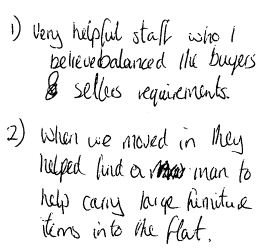 1) Very helpful staff who I
believe balanced the buyers
& sellers requirements.
2) When we moved in they
helped find a man to
help carry large furniture
items into the flat.